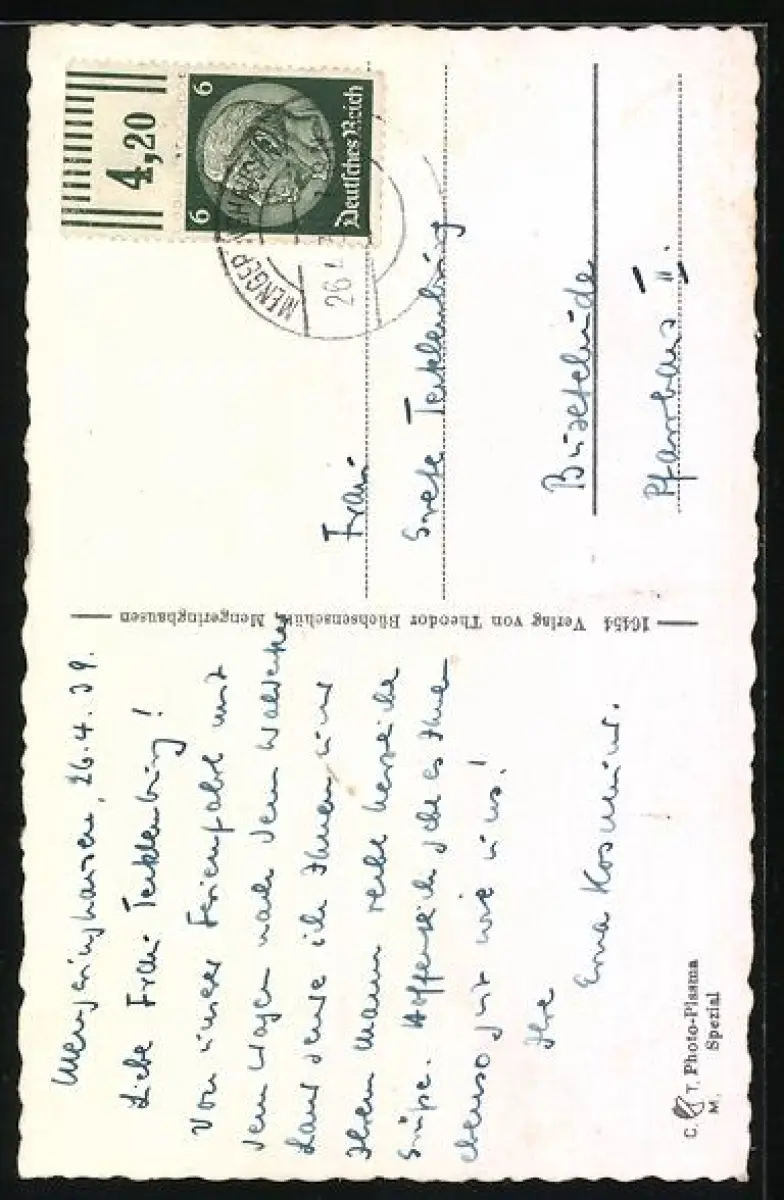 Mengeringhausen, 26.4.39.
Liebe Frau Tecklenburg!
Von unserer Ferienfahrt mit
dem Wagen nach dem Waldecker
Land sende ich Ihnen und
Ihrem Mann recht herzliche
Grüße. Hoffentlich geht es Ihnen
ebenso gut wie uns!
Ihre
Erna
C. T. Photo-Plasma
M. Spezial
16454 Verlag von Theodor Büchsenschütz, Mengeringhausen
4,20
6 6
Deutsches Reich
26.
Frau
Grete Tecklenburg
Pfarrhaus II.